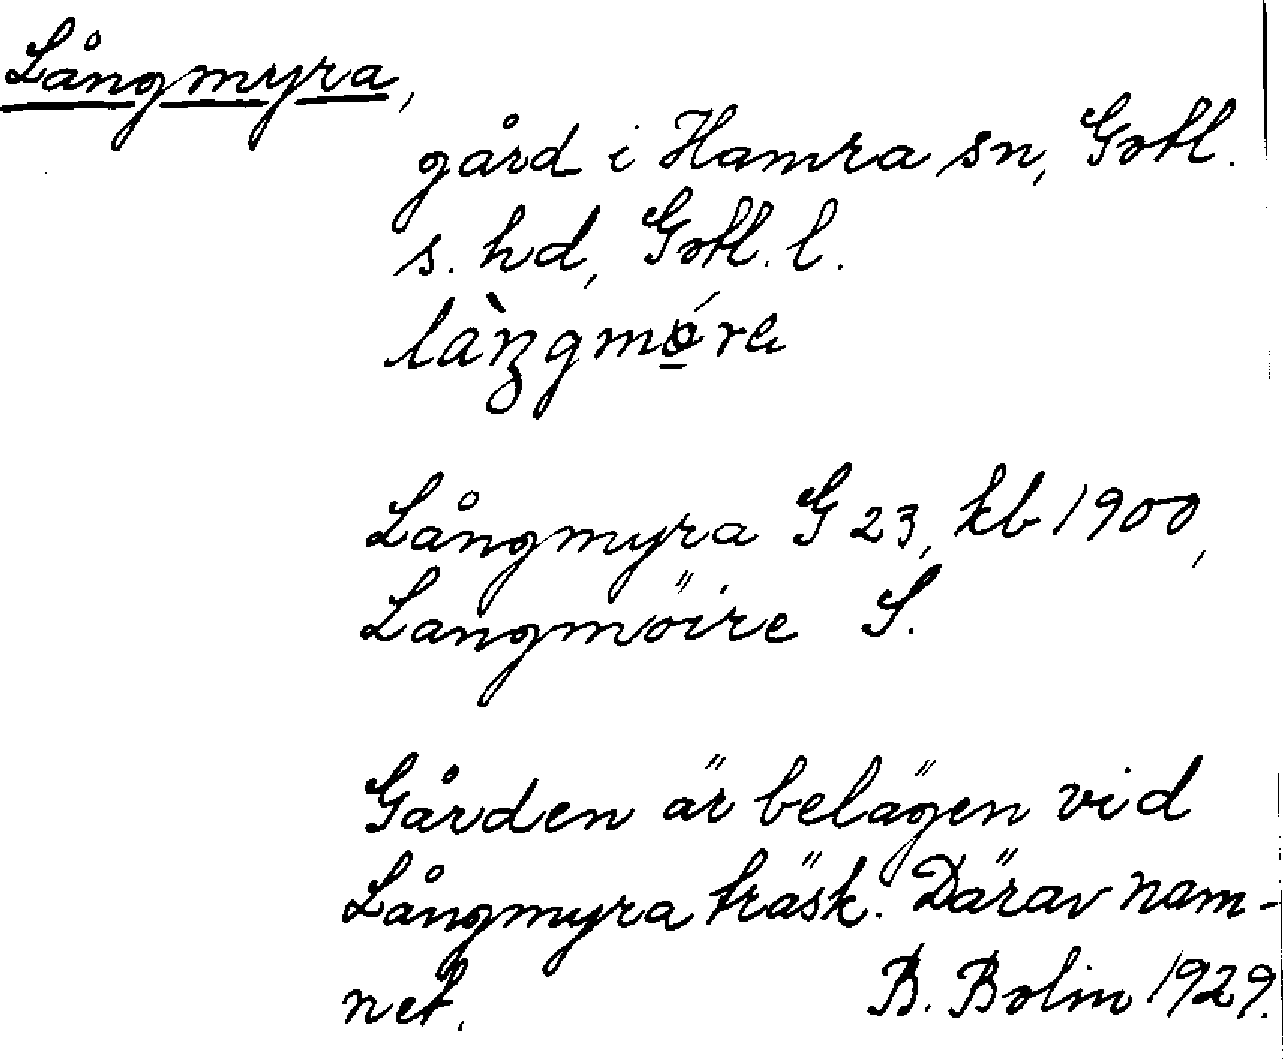 Långmyra,
gård i Hamra sn, Gotl.
s. hd, Gotl. l.
Långmyra G 23, kb 1900,
Langmöire S.
Gården är belägen vid
Långmyra träsk. Därav nam-
net. B. Bolin 1929.